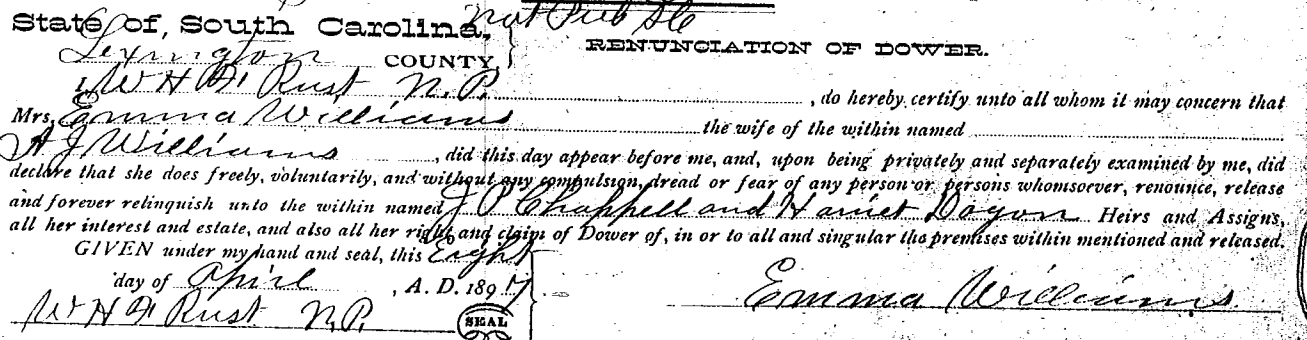 Not Pub SC
State of, South Carolina,
Lexington COUNTY
RENUNCIATION OF DOWER.
I, W H F Rust N.P. , do hereby certify unto all whom it may concern that
Mrs. Emma Williams the wife of the within named
A J Williams , did this day appear before me, and, upon being privately and separately examined by me, did
declare that she does freely, voluntarily, and without any compulsion, dread or fear of any person or persons whomsoever, renounce, release
and forever relinquish unto the within named J P Chappell and Harriet Heirs and Assigns,
all her interest and estate, and also all her right and claim of Dower of, in or to all and singular the premises within mentioned and released.
GIVEN under my hand and seal, this Eight
day of April , A. D. 1897
Emma Williams
W H F Rust N.P. SEAL